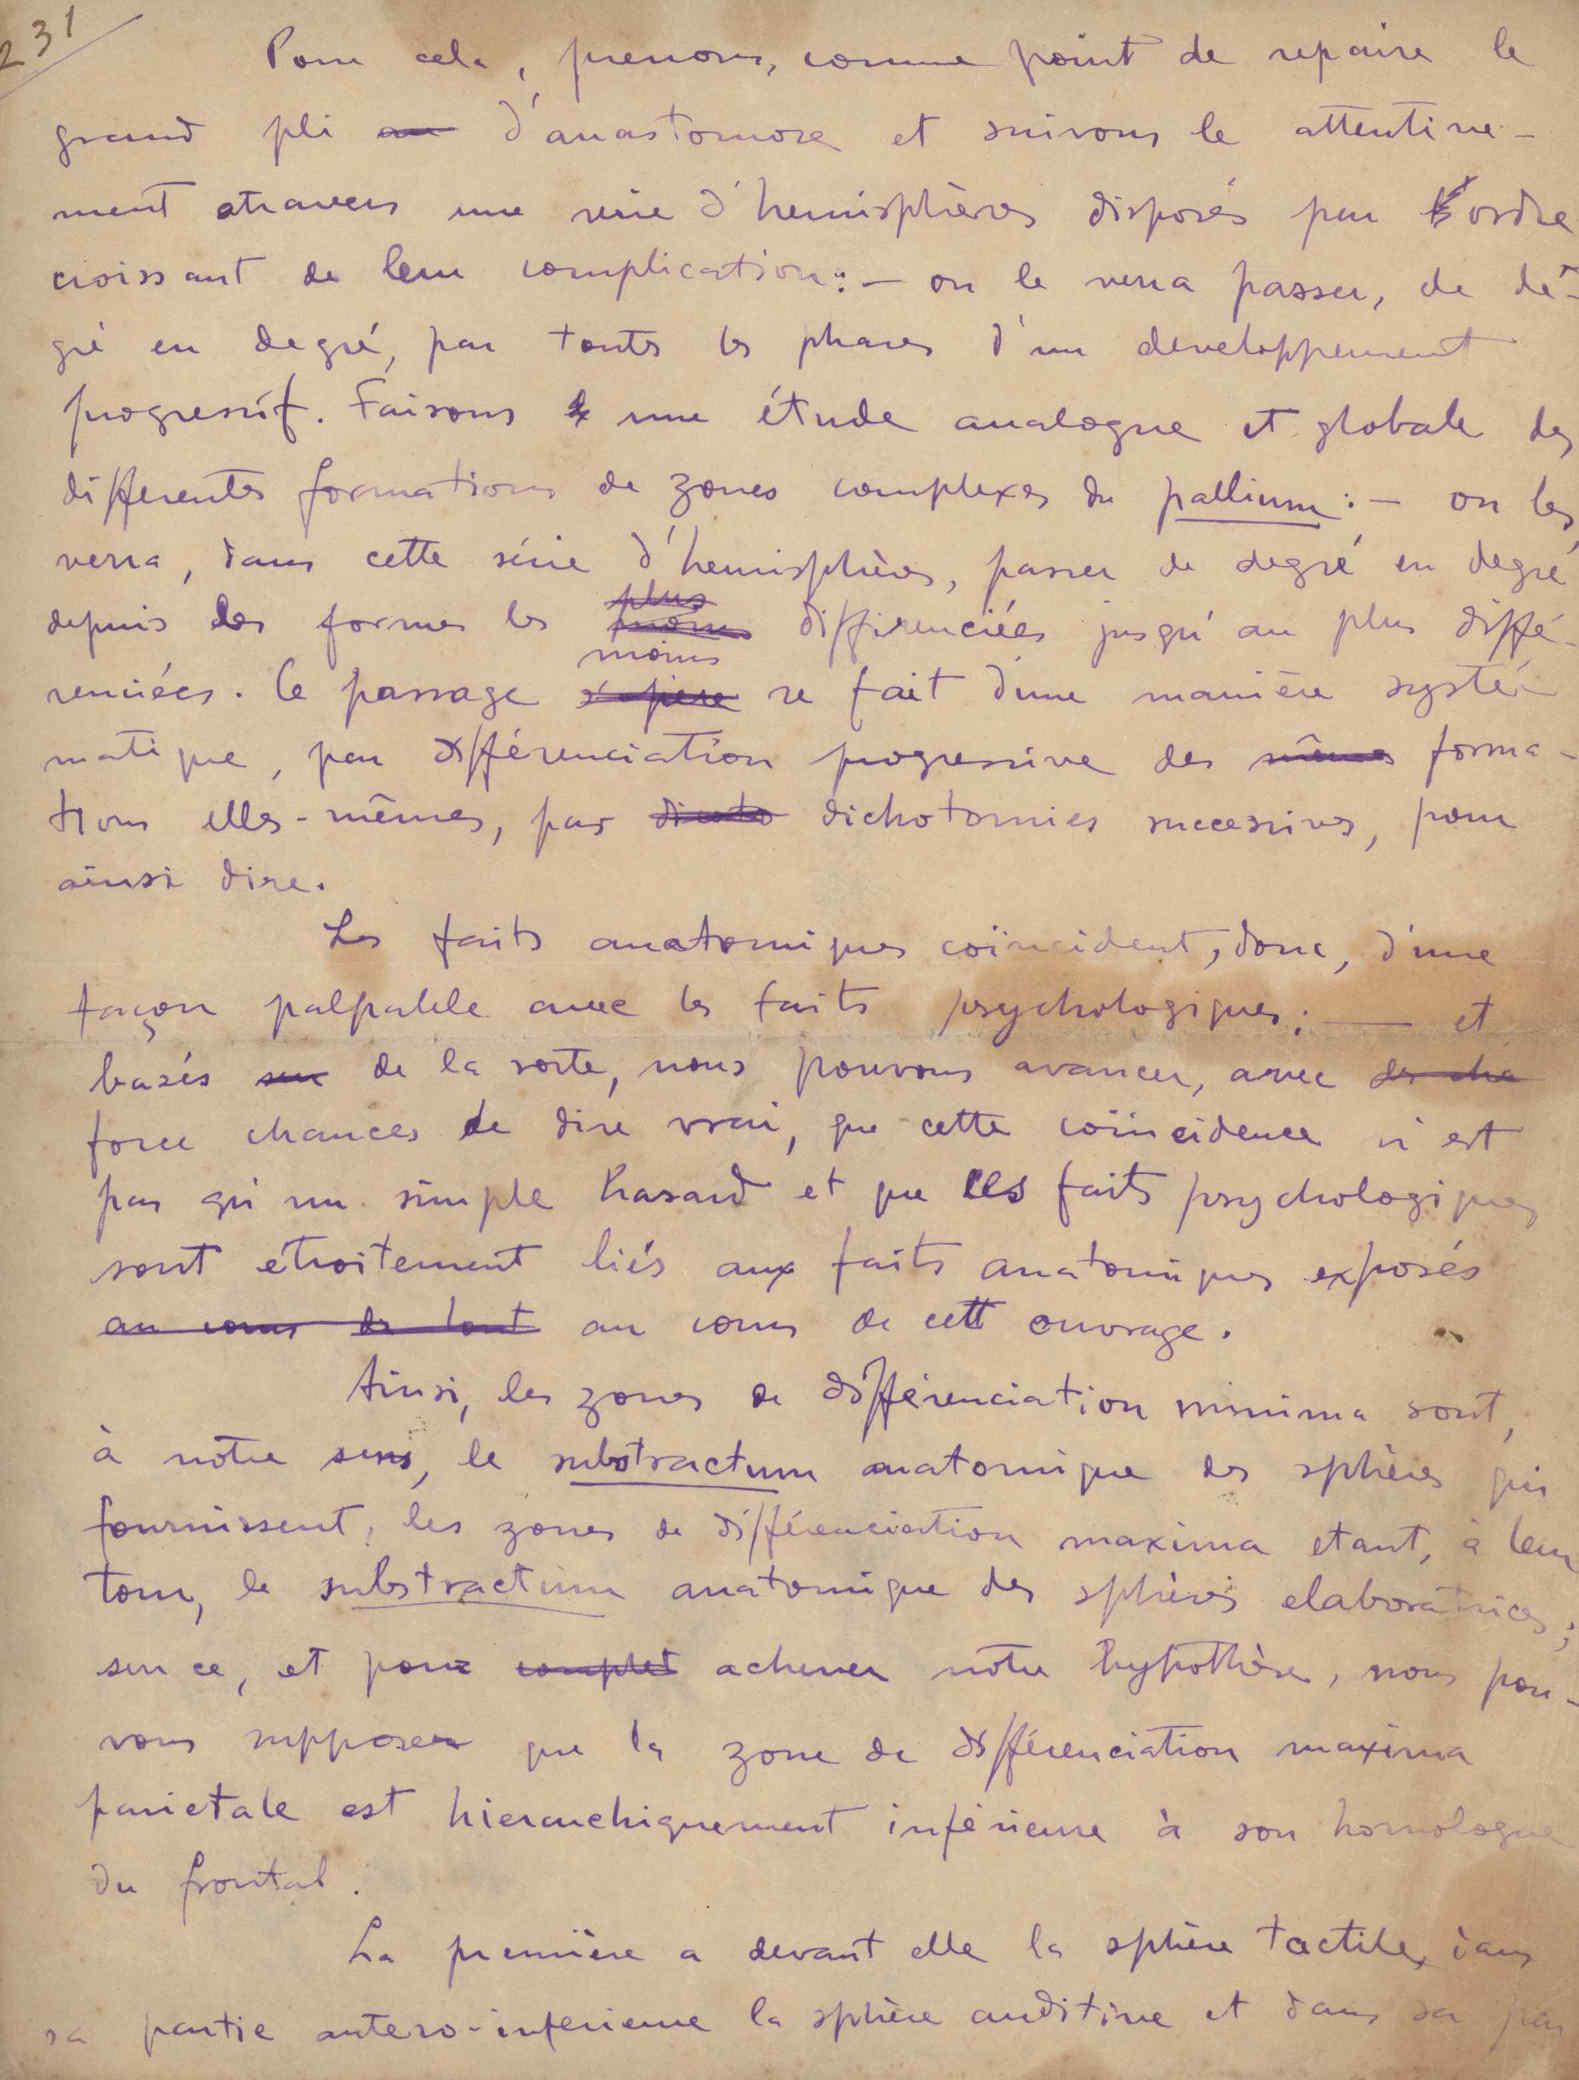 231
Pour cela, prenons, comme point de repaire le
grand pli au d'anastomose et suivons le attentive-
ment atravers une serie d'hemisphères disposés par ordre
croissant de leur complication: — on le verra passer, de de-
gré en degré, par toutes les phases d'un developpement
progressif. Faisons une étude analogue et globale des
differentes formations de zones complexes du pallium: — on les
verra, dans cette série d'hemisphères, passer de degré en degré
plus
depuis les formes les moins différenciées jusqu'au plus diffé-
moins
renciées. Ce passage s'opère se fait d'une manière systé-
matique, par différenciation progressive des mêmes forma-
tions elles-mêmes, par dichotomies successives, pour
ainsi dire.
Les faits anatomiques coïncident, donc, d'une
façon palpable avec les faits psychologiques; — et
basés sur de la sorte, nous pouvons avancer, avec des cha
force chances de dire vrai, que cette coïncidence n'est
pas qu'un simple hasard et que les faits psychologiques
sont étroitement liés aux faits anatomiques exposés
au cours de tout au cours de cett ouvrage.
Ainsi, les zones de différenciation minima sont,
à notre sens, le substractum anatomique des sphères qui
fournissent, les zones de différenciation maxima etant, à leur
tour, le substractum anatomique des sphères elaboratrices;
sur ce, et pour complet achever notre hypothèse, nous pou-
vons supposer que la zone de différenciation maxima
parietale est hierarchiquement inférieure à son homologue
du frontal.
La première a devant elle la sphère tactile, dans
sa partie antero-inferieure la sphère auditive et dans sa par